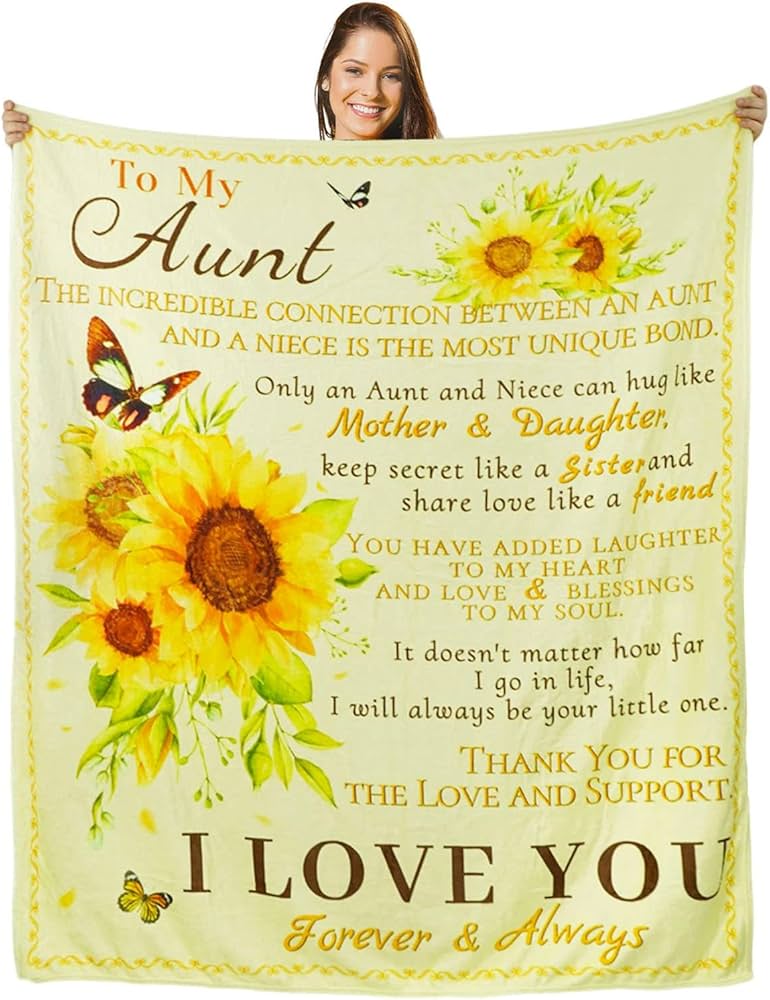 To My
Aunt
THE INCREDIBLE CONNECTION BETWEEN AN AUNT
AND A NIECE IS THE MOST UNIQUE BOND.
Only an Aunt and Niece can hug like
Mother & Daughter,
keep secret like a Sister and
share love like a friend
YOU HAVE ADDED LAUGHTER
TO MY HEART
AND LOVE & BLESSINGS
TO MY SOUL.
It doesn't matter how far
I go in life,
I will always be your little one.
THANK YOU FOR
THE LOVE AND SUPPORT.
I LOVE YOU
Forever & Always